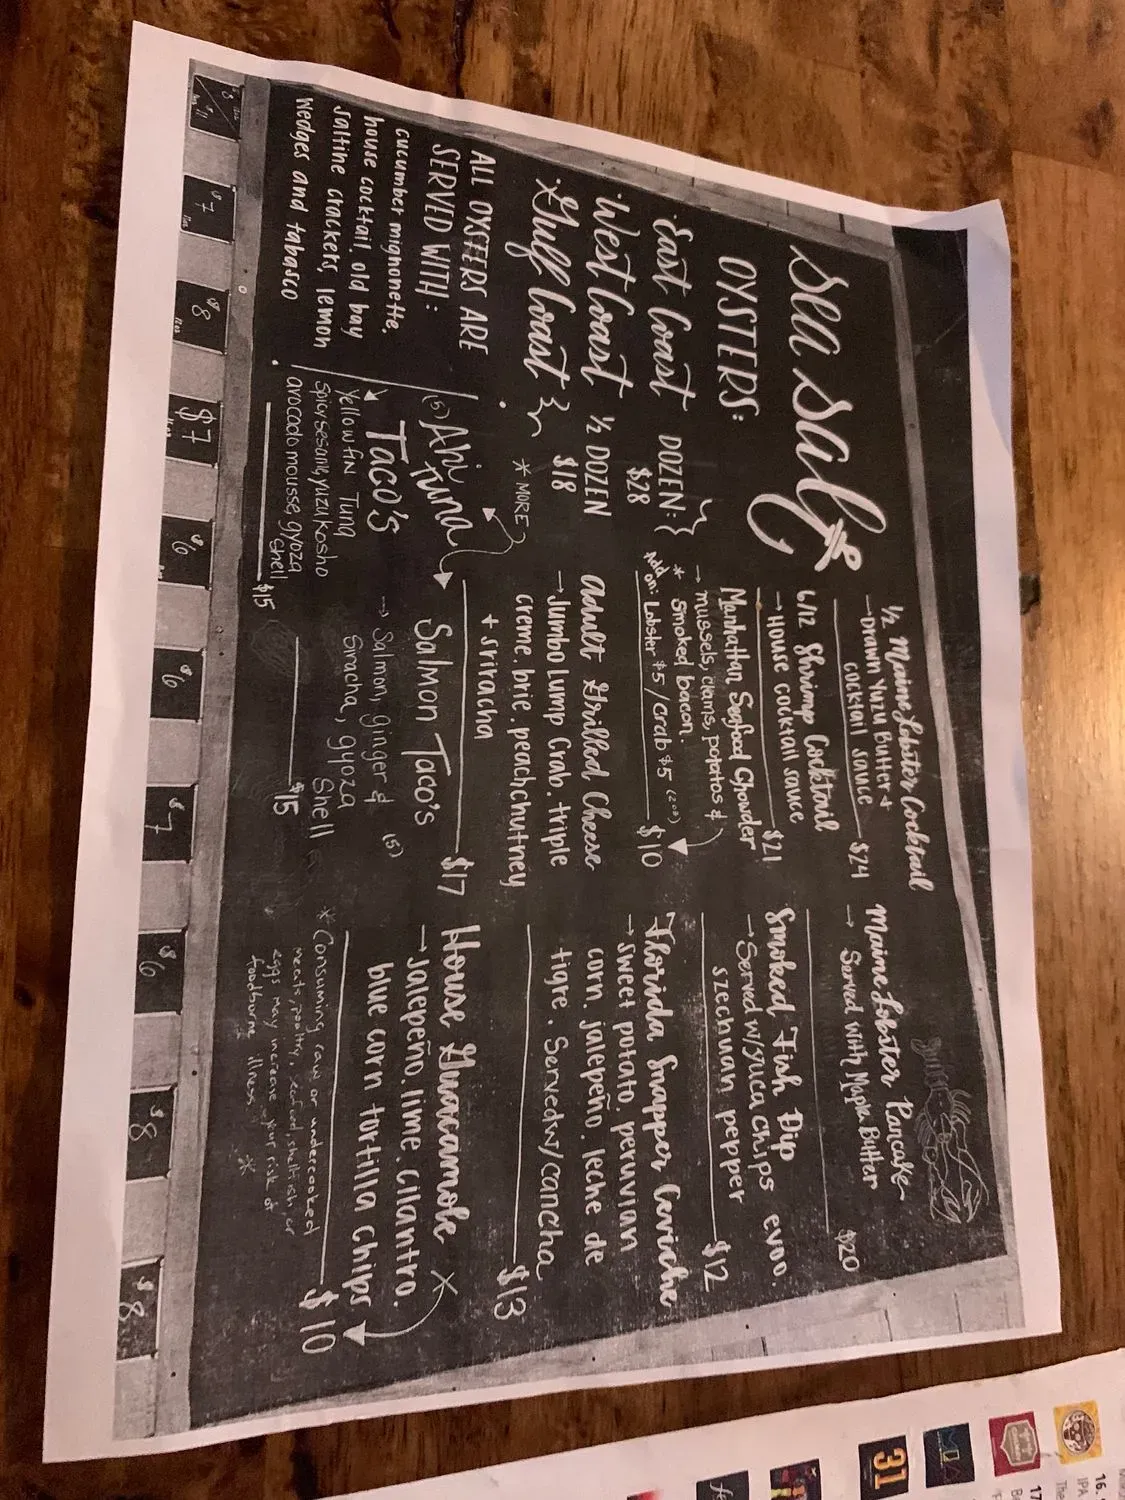 Sea Salt
OYSTERS:
·East Coast DOZEN:
$28
·West Coast ½ DOZEN
$18
·Gulf Coast
* MORE
ALL OYSTERS ARE
SERVED WITH:
cucumber mignonette,
house cocktail, old bay
saltine crackers, lemon
wedges and tabasco
(5) Ahi
Tuna
TACO'S
Yellowfin Tuna
Spicy sesame, yuzu kosho
avocado mousse, gyoza
shell
$15
½ Maine Lobster Cocktail
→Drawn Yuzu Butter +
cocktail sauce
$24
6/12 Shrimp Cocktail
→ HOUSE COCKTAIL SAUCE
$21
Manhattan Seafood Chowder
→ mussels, clams, potatoes &
* smoked bacon.
Add on: Lobster $5/Crab $5 (2oz)
$10
Adult Grilled Cheese
→ Jumbo Lump Crab, triple
creme, brie, peach chutney
+ sriracha
$17
Salmon Taco's
(5)
→ Salmon, ginger &
Siracha, gyoza
Shell
$15
Maine Lobster Pancake
→ Served with Maple Butter
$20
Smoked Fish Dip
→Served w/ yuca chips evoo,
szechuan pepper
$12
Florida Snapper Ceviche
→sweet potato, peruvian
corn, jalepeño, leche de
tigre. Served w/ cancha
$13
House Guacamole
→ Jalepeño, lime, cilantro,
blue corn tortilla chips
$10
*Consuming raw or undercooked
meats, poultry, seafood, shellfish or
eggs may increase your risk of
foodborne illness *
$7
$8
$7
$6
$6
$7
$6
$8
$8
16.
IPA
The
17
31